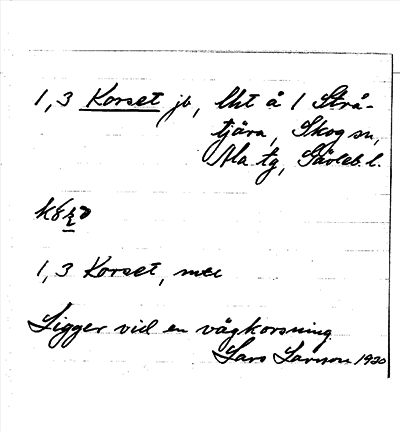 1,3 Korset jb, Uht å 1 Strå-
tjära, Skog sn,
Ala tg, Gävleb. l.
1,3 Korset, mtl
Ligger vid en vägkorsning.
Lars Larsson 1920